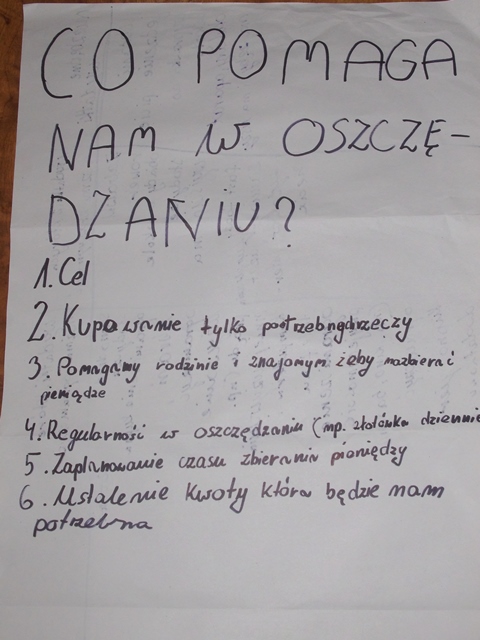 CO POMAGA
NAM W OSZCZĘ-
DZANIU?
1. Cel
2. Kupowanie tylko potrzebnych rzeczy
3. Pomagamy rodzinie i znajomym żeby nazbierać
pieniądze
4. Regularność w oszczędzaniu (np. złotówka dziennie
5. Zaplanowanie czasu zbierania pieniędzy
6. Ustalenie kwoty która będzie nam
potrzebna